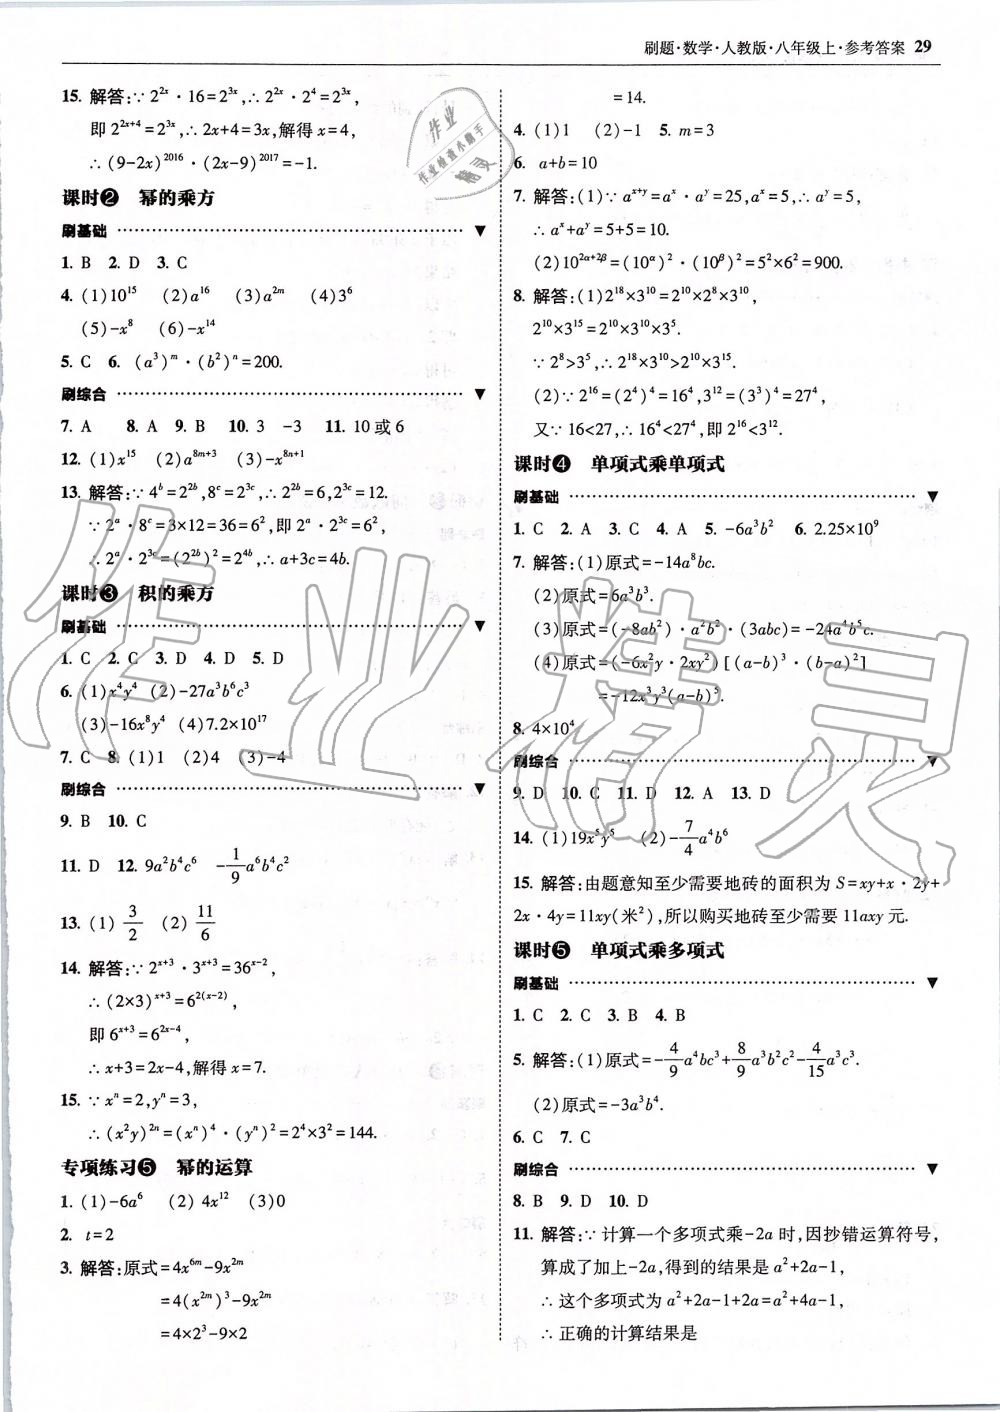 刷题·数学·人教版·八年级上·参考答案 29
15. 解答:∵2^{2x}·16=2^{3x},∴2^{2x}·2^4=2^{3x},
即2^{2x+4}=2^{3x},∴2x+4=3x,解得x=4,
∴(9-2x)^{2016}·(2x-9)^{2017}=-1.
课时❷ 幂的乘方
刷基础 ▼
1. B 2. D 3. C
4. (1)10^{15} (2)a^{16} (3)a^{2m} (4)3^6
(5)-x^8 (6)-x^{14}
5. C 6. (a^3)^m·(b^2)^n=200.
刷综合 ▼
7. A 8. A 9. B 10. 3 -3 11. 10或6
12. (1)x^{15} (2)a^{8m+3} (3)-x^{8n+1}
13. 解答:∵4^b=2^{2b},8^c=2^{3c},∴2^{2b}=6,2^{3c}=12.
∵2^a·8^c=3×12=36=6^2,即2^a·2^{3c}=6^2,
∴2^a·2^{3c}=(2^{2b})^2=2^{4b},∴a+3c=4b.
课时❸ 积的乘方
刷基础 ▼
1. C 2. C 3. D 4. D 5. D
6. (1)x^4y^4 (2)-27a^3b^6c^3
(3)-16x^8y^4 (4)7.2×10^{17}
7. C 8. (1)1 (2)4 (3)-4
刷综合 ▼
9. B 10. C
11. D 12. 9a^2b^4c^6 -\frac{1}{9}a^6b^4c^2
13. (1)\frac{3}{2} (2)\frac{11}{6}
14. 解答:∵2^{x+3}·3^{x+3}=36^{x-2},
∴(2×3)^{x+3}=6^{2(x-2)},
即6^{x+3}=6^{2x-4},
∴x+3=2x-4,解得x=7.
15. ∵x^n=2,y^n=3,
∴(x^2y)^{2n}=(x^n)^4·(y^n)^2=2^4×3^2=144.
专项练习❺ 幂的运算
1. (1)-6a^6 (2)4x^{12} (3)0
2. t=2
3. 解答:原式=4x^{6m}-9x^{2m}
=4(x^{2m})^3-9x^{2m}
=4×2^3-9×2
=14.
4. (1)1 (2)-1 5. m=3
6. a+b=10
7. 解答:(1)∵a^{x+y}=a^x·a^y=25,a^x=5,∴a^y=5,
∴a^x+a^y=5+5=10.
(2)10^{2α+2β}=(10^α)^2·(10^β)^2=5^2×6^2=900.
8. 解答:(1)2^{18}×3^{10}=2^{10}×2^8×3^{10},
2^{10}×3^{15}=2^{10}×3^{10}×3^5.
∵2^8>3^5,∴2^{18}×3^{10}>2^{10}×3^{15}.
(2)∵2^{16}=(2^4)^4=16^4,3^{12}=(3^3)^4=27^4,
又∵16<27,∴16^4<27^4,即2^{16}<3^{12}.
课时❹ 单项式乘单项式
刷基础 ▼
1. C 2. A 3. C 4. A 5. -6a^3b^2 6. 2.25×10^9
7. 解答:(1)原式=-14a^8bc.
(2)原式=6a^3b^3.
(3)原式=(-8ab^2)·a^2b^2·(3abc)=-24a^4b^5c.
(4)原式=(-6x^2y·2xy^2)[(a-b)^3·(b-a)^2]
=-12x^3y^3(a-b)^5.
8. 4×10^4
刷综合 ▼
9. D 10. C 11. D 12. A 13. D
14. (1)19x^5y^5 (2)-\frac{7}{4}a^4b^6
15. 解答:由题意知至少需要地砖的面积为S=xy+x·2y+
2x·4y=11xy(米^2),所以购买地砖至少需要11axy元.
课时❺ 单项式乘多项式
刷基础 ▼
1. C 2. C 3. B 4. B
5. 解答:(1)原式=-\frac{4}{9}a^4bc^3+\frac{8}{9}a^3b^2c^2-\frac{4}{15}a^3c^3.
(2)原式=-3a^3b^4.
6. C 7. C
刷综合 ▼
8. B 9. D 10. D
11. 解答:∵计算一个多项式乘-2a时,因抄错运算符号,
算成了加上-2a,得到的结果是a^2+2a-1,
∴这个多项式为a^2+2a-1+2a=a^2+4a-1,
∴正确的计算结果是
作业
作业检查小助手
精灵
作业精灵